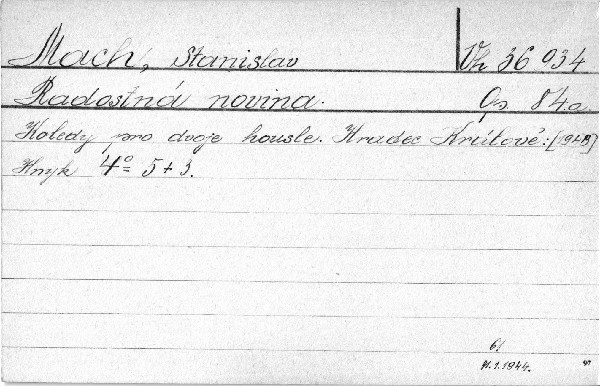 Mach, Stanislav Vh 36 034
Radostná novina. Op. 84a
Koledy pro dvoje housle. Hradec Králové:
Hnyk 4º 5+3.
61
1.1944.